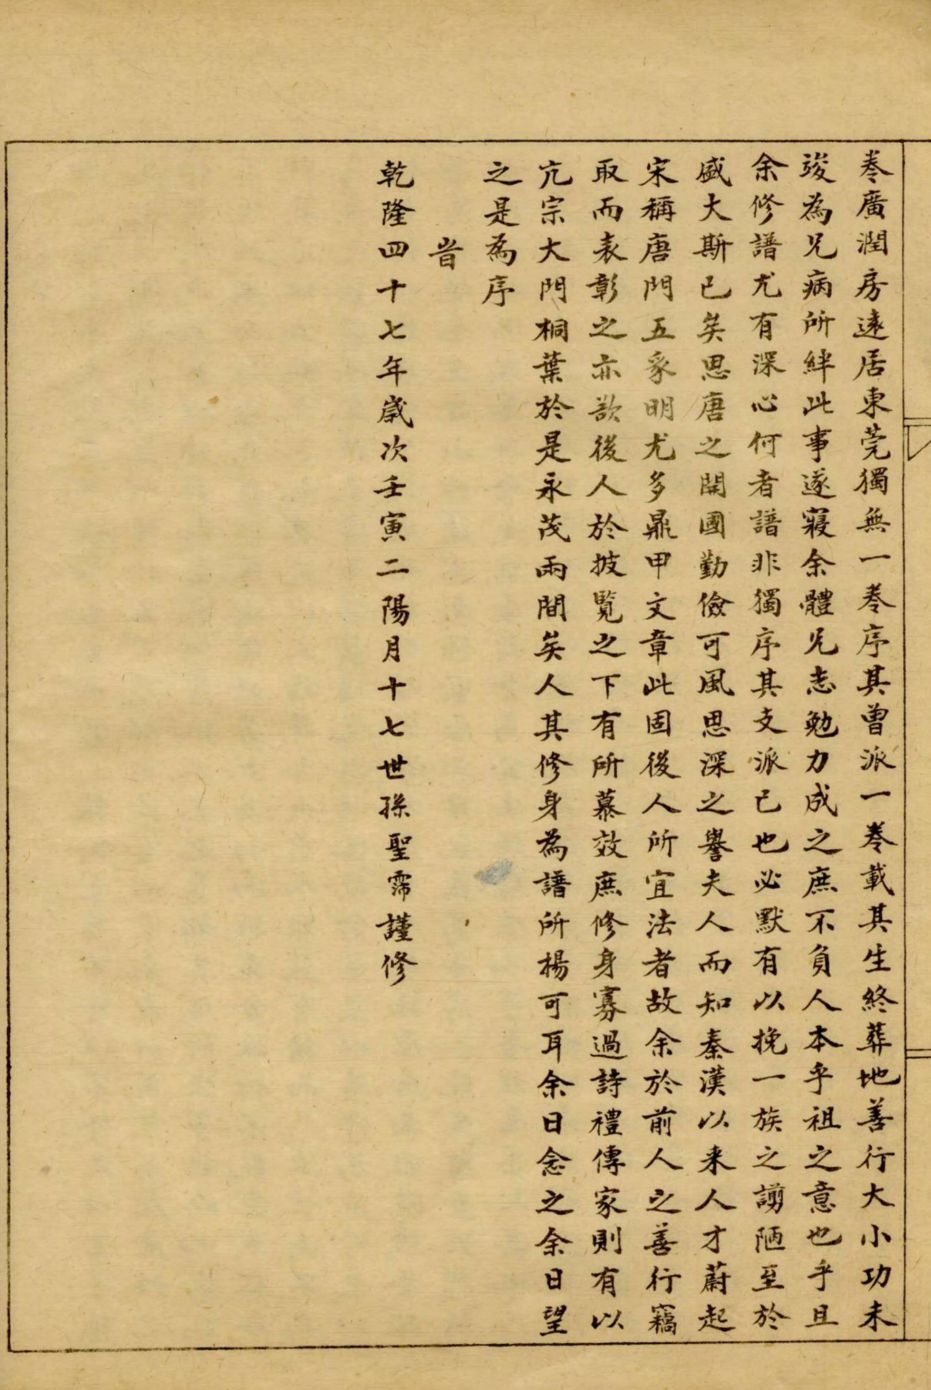 卷廣潤房遠居東莞獨無一卷序其曾派一卷載其生終葬地善行大小功未
竣為兄病所絆此事遂寢余體兄志勉力成之庶不負人本乎祖之意也乎且
余修譜尤有深心何者譜非獨序其支派已也必默有以挽一族之謭陋至於
盛大斯已矣思唐之開國勤儉可風思深之譽夫人而知秦漢以来人才蔚起
宋稱唐門五豸明尤多鼎甲文章此固後人所宜法者故余於前人之善行竊
取而表彰之亦欲後人於披覽之下有所慕效庶修身寡過詩禮傳家則有以
亢宗大門桐葉於是永茂兩間矣人其修身為譜所楊可耳余日念之余日望
之是為序
旹
乾隆四十七年歲次壬寅二陽月十七世孫聖霈謹修